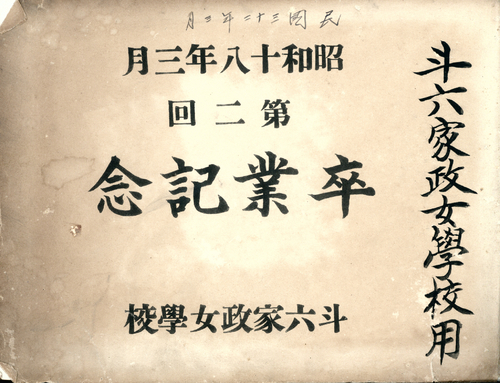 民國三十二年三月
昭和十八年三月
第二回
卒業記念
斗六家政女學校
斗六家政女學校用